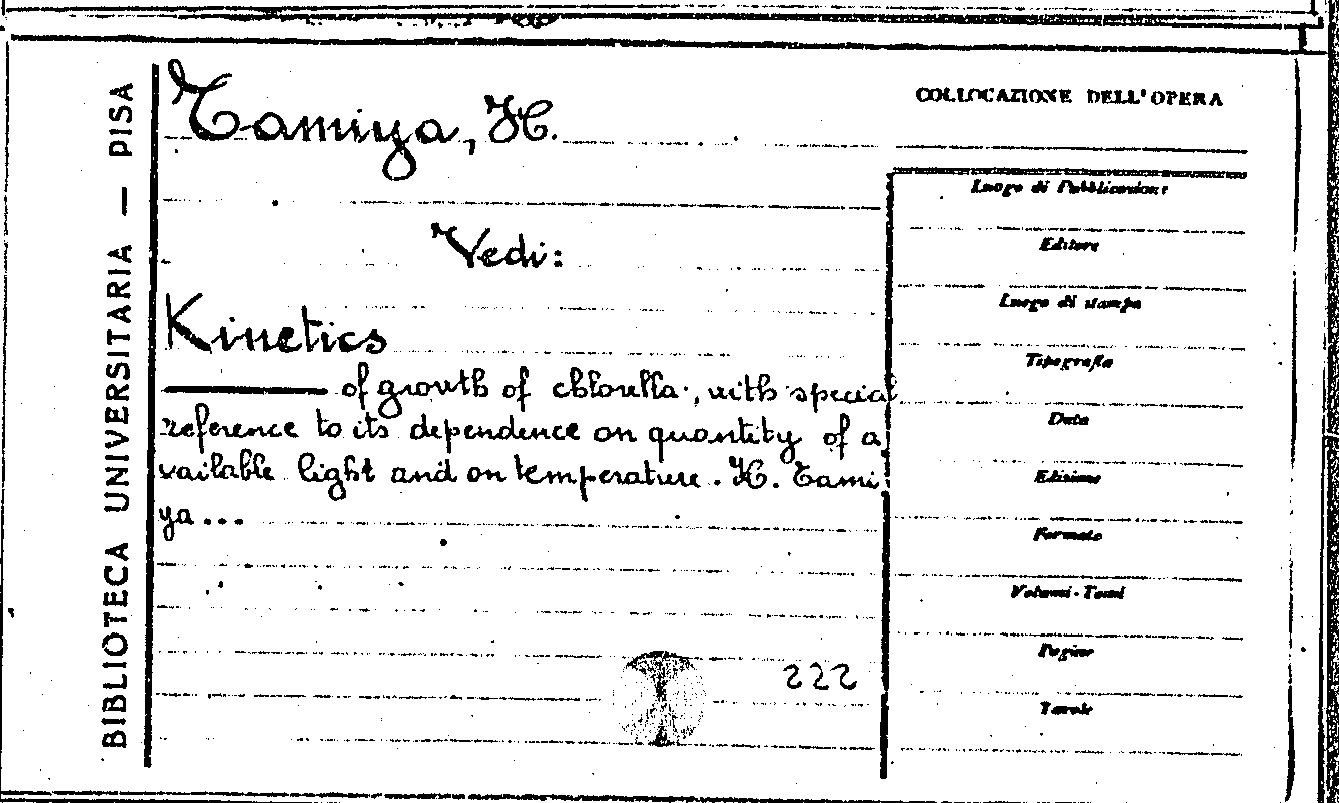 BIBLIOTECA UNIVERSITARIA — PISA
Tamiya, H.
Vedi:
Kinetics
——— of growth of chlorella, with special
reference to its dependence on quantity of a
vailable light and on temperature. H. Tami
ya...
222
COLLOCAZIONE DELL'OPERA
Luogo di Pubblicazione
Editore
Luogo di stampa
Tipografia
Data
Edizione
Formato
Volumi - Tomi
Pagine
Tavole